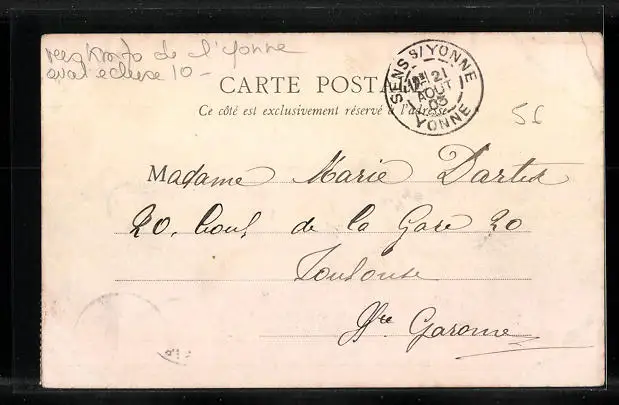 de l'Yonne
aval écluse 10 -
CARTE POSTA
Ce côté est exclusivement réservé à l'adresse
SENS S/YONNE
21
AOUT
03
YONNE
56
Madame Marie Dartet
20. Boul. de la Gare 20
Toulouse
Hte Garonne